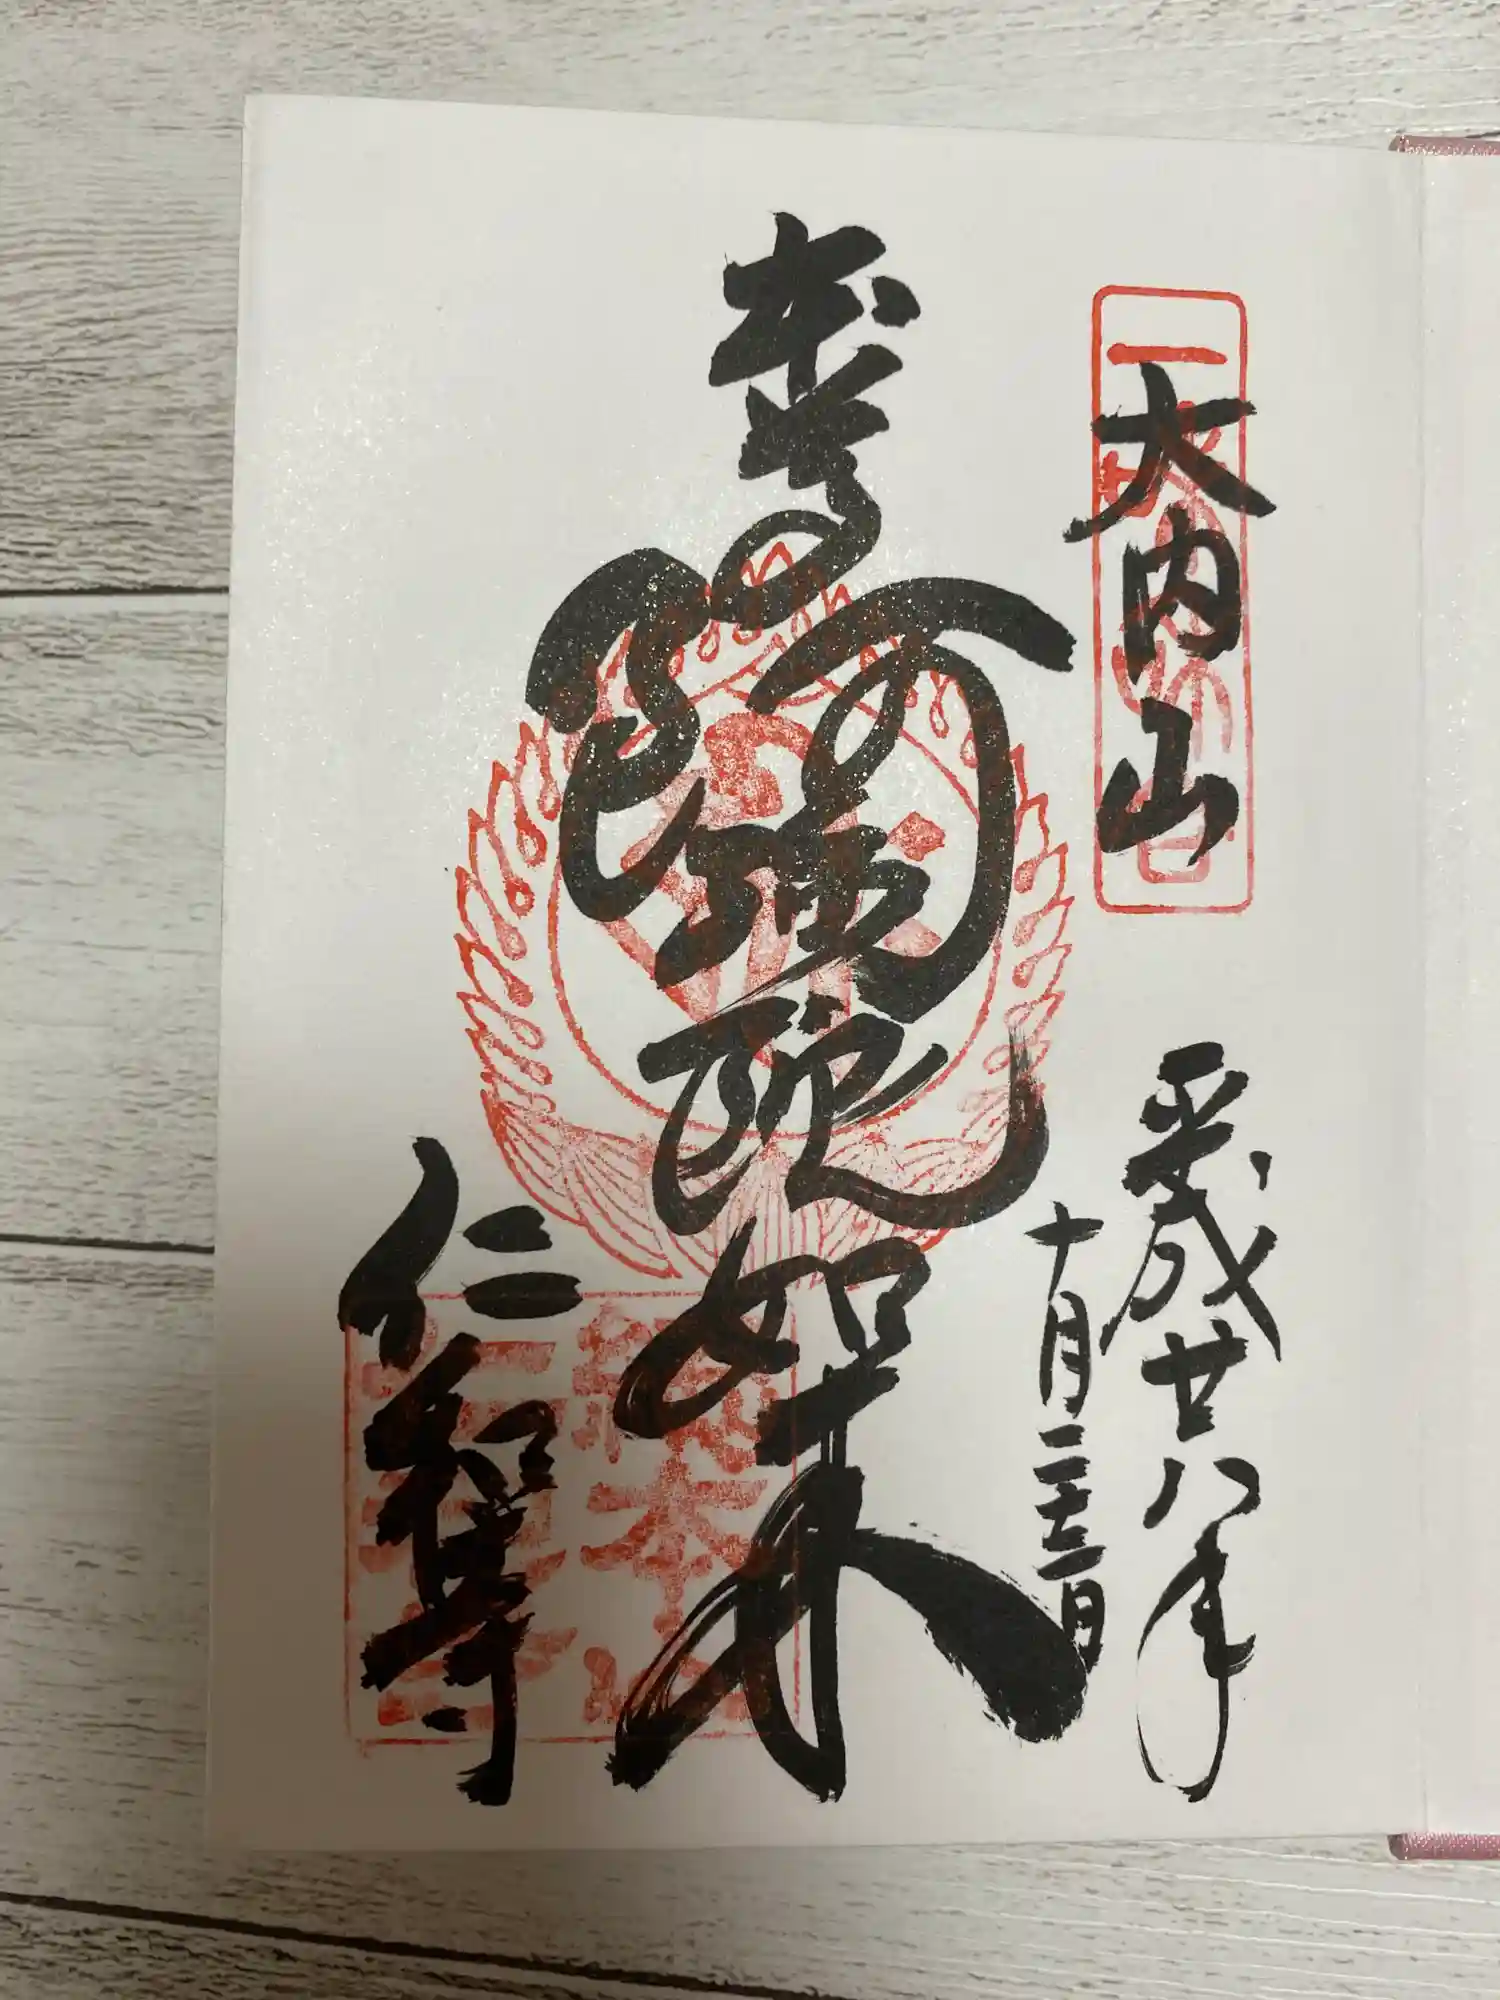 大内山
平成廿八年
十月二十三日
奉
阿弥陀如来
仁和寺
総本山
仁和寺